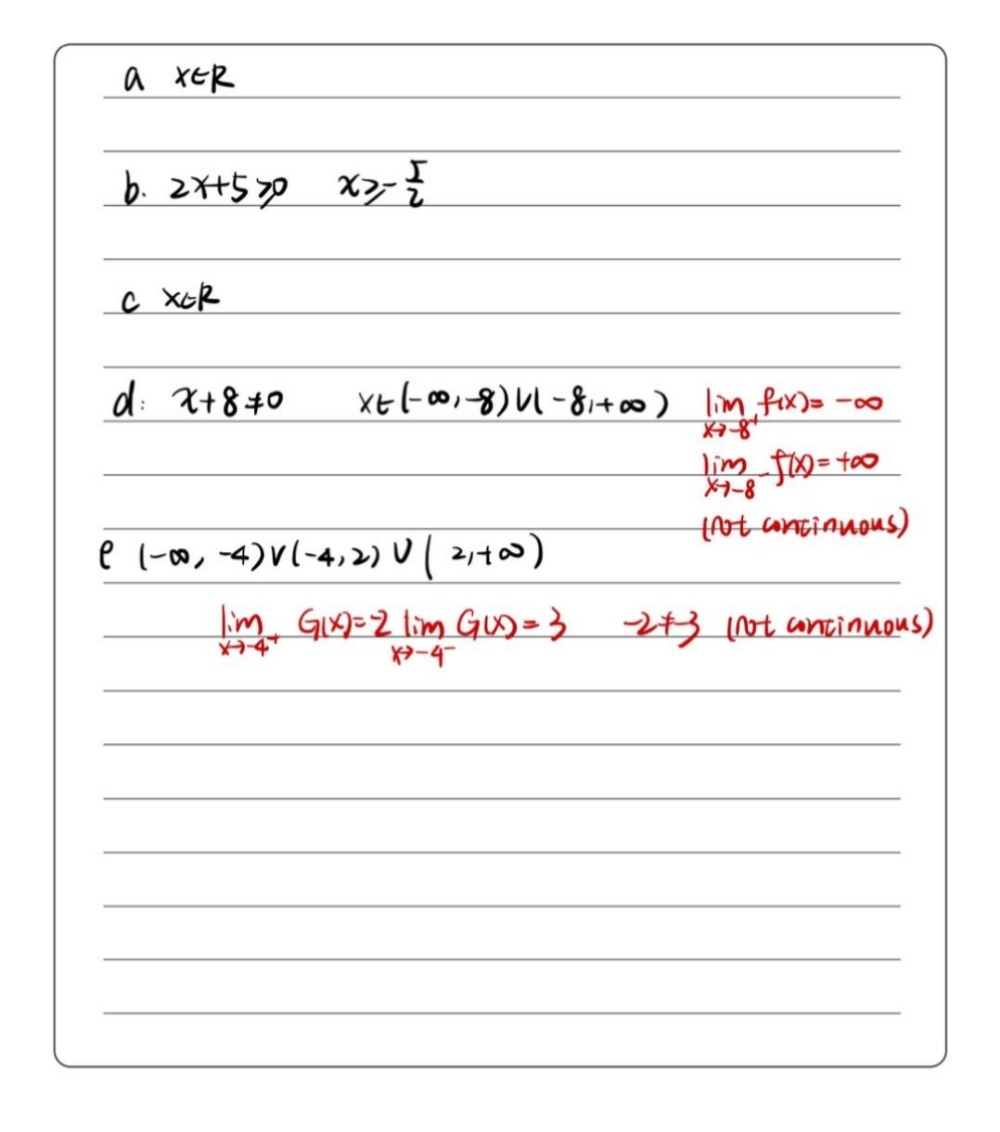 a x∈R
b. 2x+5⩾0 x⩾-5/2
c x∈R
d: x+8≠0 x∈(-∞,-8)∪(-8,+∞) lim x→-8⁺ f(x)=-∞
lim x→-8⁻ f(x)=+∞
(not continuous)
e (-∞, -4)∪(-4,2)∪(2,+∞)
lim x→-4⁺ G(x)=2 lim x→-4⁻ G(x)=3 -2≠3 (not continuous)